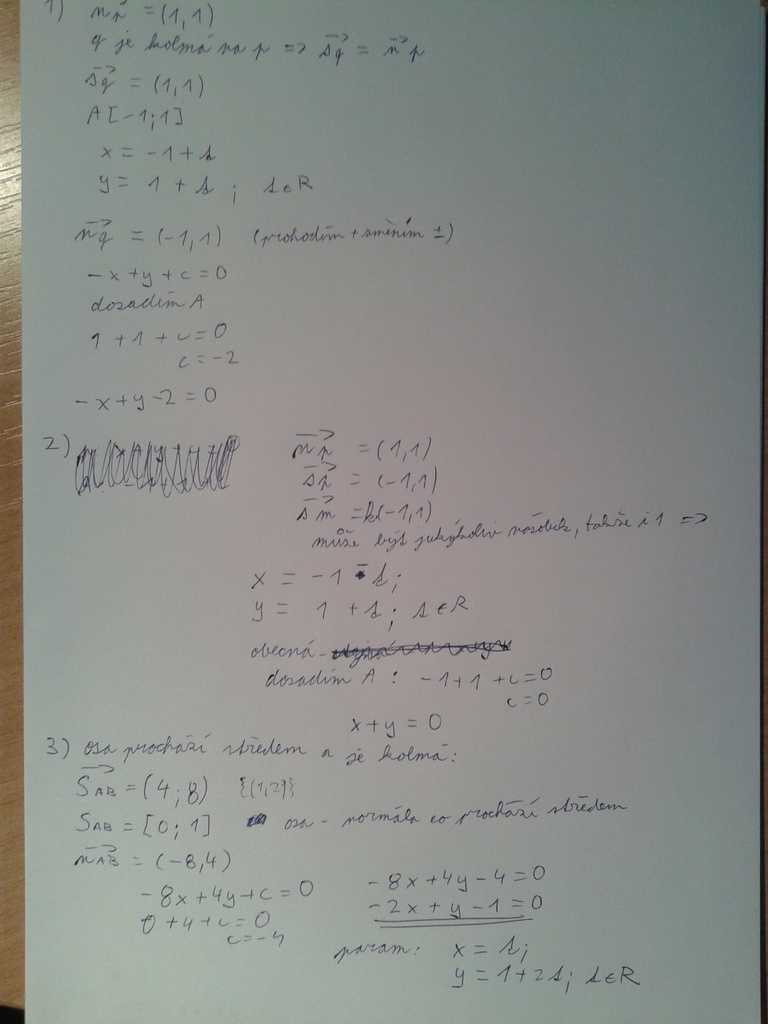 1) n⃗p = (1,1)
q je kolmá na p => s⃗q = n⃗p
s⃗q = (1,1)
A[-1;1]
x = -1 + s
y = 1 + s ; s∈R
n⃗q = (-1,1) (prohodím + změním ±)
-x+y+c=0
dosadím A
1+1+c=0
c=-2
-x+y-2=0
2)
n⃗p = (1,1)
s⃗p = (-1,1)
s⃗m = k(-1,1)
může být jakýkoliv násobek, takže i 1 =>
x = -1 - s;
y = 1 + s; s∈R
obecná -
dosadím A: -1+1+c=0
c=0
x+y=0
3) osa prochází středem a je kolmá:
S⃗AB = (4;8) {(1,2)}
SAB = [0;1] osa - normála co prochází středem
n⃗AB = (-8,4)
-8x+4y+c=0
0+4+c=0
c=-4
-8x+4y-4=0
-2x+y-1=0
param: x = s;
y = 1+2s; s∈R